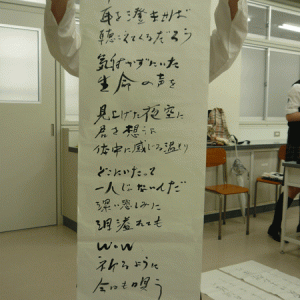 耳を澄ませば
聴こえてくるだろう
気付かずにいた
生命の声を
見上げた夜空に
君を想うよ
体中に感じる温もり
どこにいたって
一人じゃないんだ
深い悲しみに
囲まれても
wow
祈るように
今日も唄う